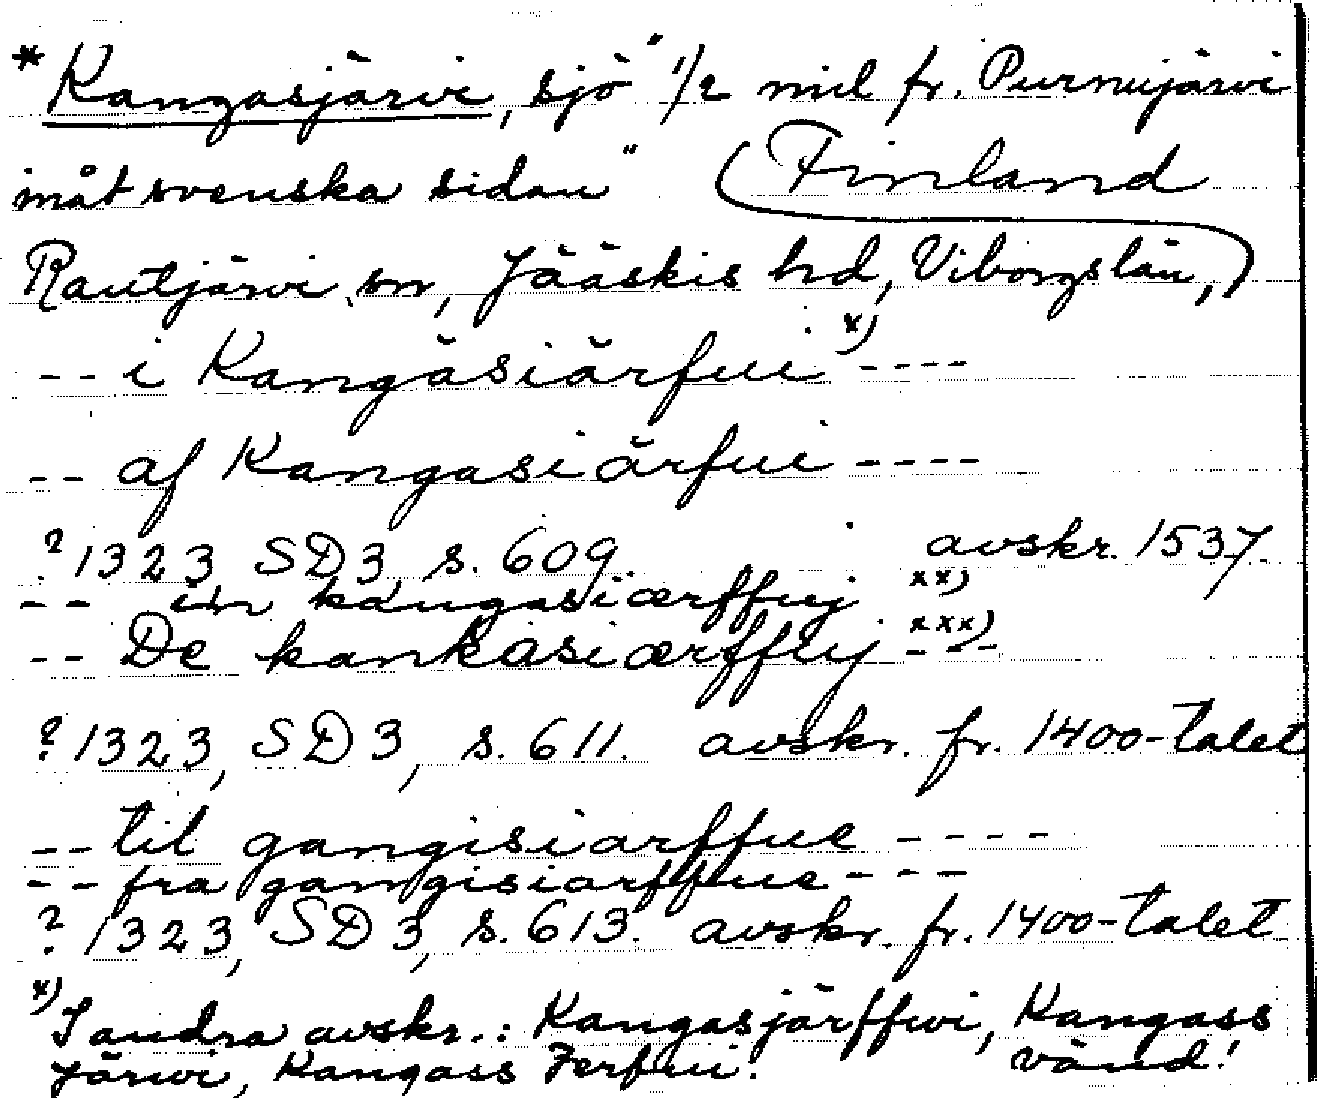 * Kangasjärvi, sjö "1/2 mil fr. Purnujärvi
inåt svenska sidan" (Finland
Rautjärvi sn, Jääskis hd, Viborgs län,)
-- i Kangäsiärfui x) ----
-- af Kangasiärfui ----
? 1323, SD 3, s. 609. avskr. 1537.
-- in kangasiærffuj xx)
-- De kankasiærffuj xxx) ---
? 1323, SD 3, s. 611. avskr. fr. 1400-talet
-- til gangisiarffue ----
-- fra gangisiarffue ---
? 1323, SD 3, s. 613. avskr. fr. 1400-talet
x) I andra avskr.: Kangasjärffwi, Kangass
Järwi, Kangass Ferfuu. vänd!